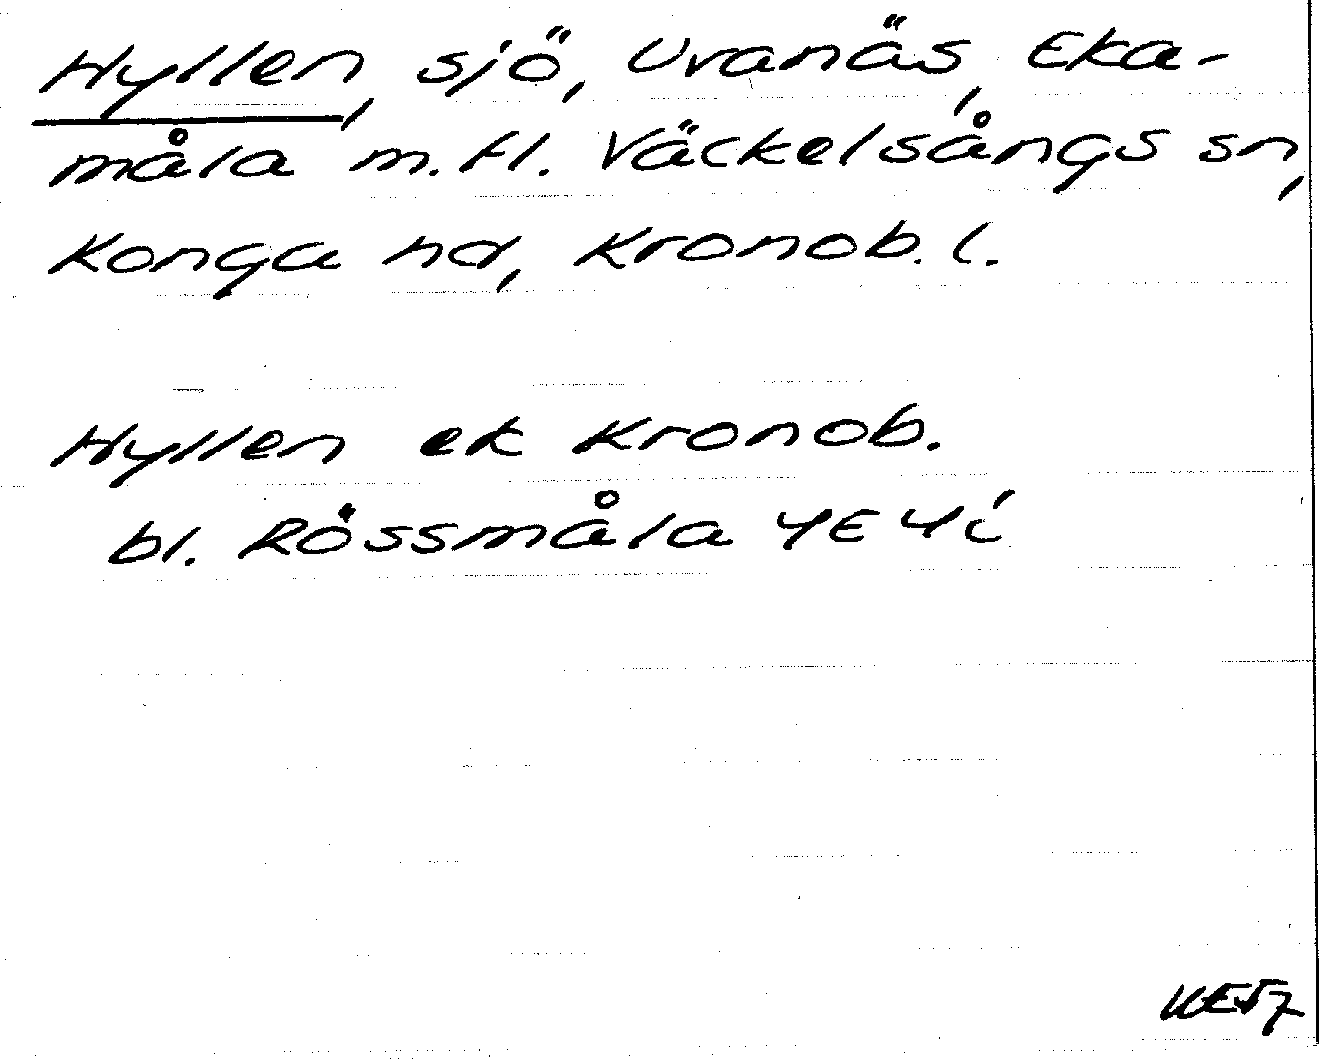 Hyllen, sjö, Uranäs, Eka-
måla m.fl. Väckelsångs sn,
Konga hd, Kronob. l.
Hyllen ek Kronob.
bl. Rössmåla 4E 4i